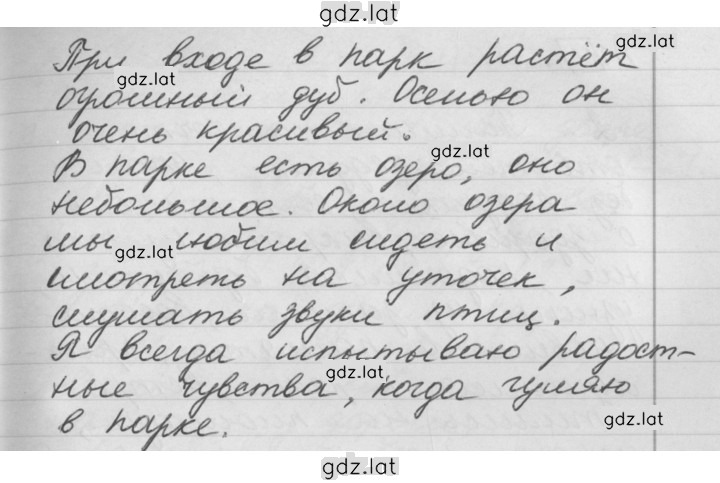 gdz.lat
При входе в парк растёт
gdz.lat
gdz.lat
огромный дуб. Осенью он
очень красивый.
В парке есть озеро, оно
gdz.lat
небольшое. Около озера
мы любим сидеть и
gdz.lat
смотреть на уточек,
слушать звуки птиц.
Я всегда испытываю радост-
gdz.lat
ные чувства, когда гуляю
в парке.
gdz.lat
gdz.lat